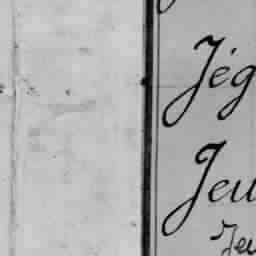 Jég
Jeu
Jeu